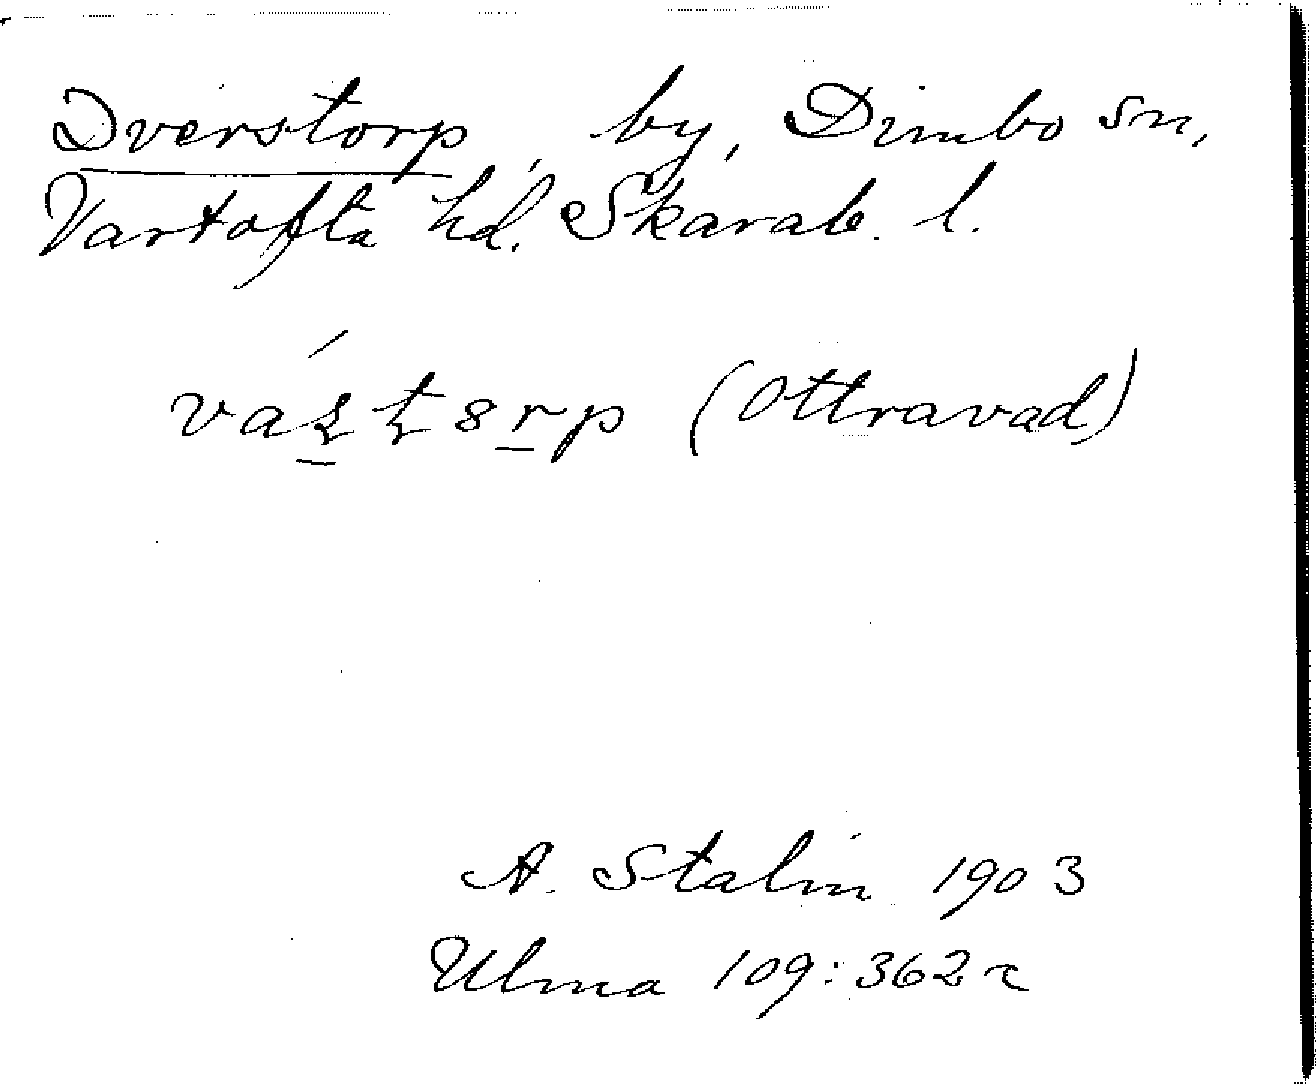 Dverstorp, by, Dimbo sn,
Vartofta hd. Skarab. l.
(Ottravad)
A. Stalin 1903
Ulma 109:362 r